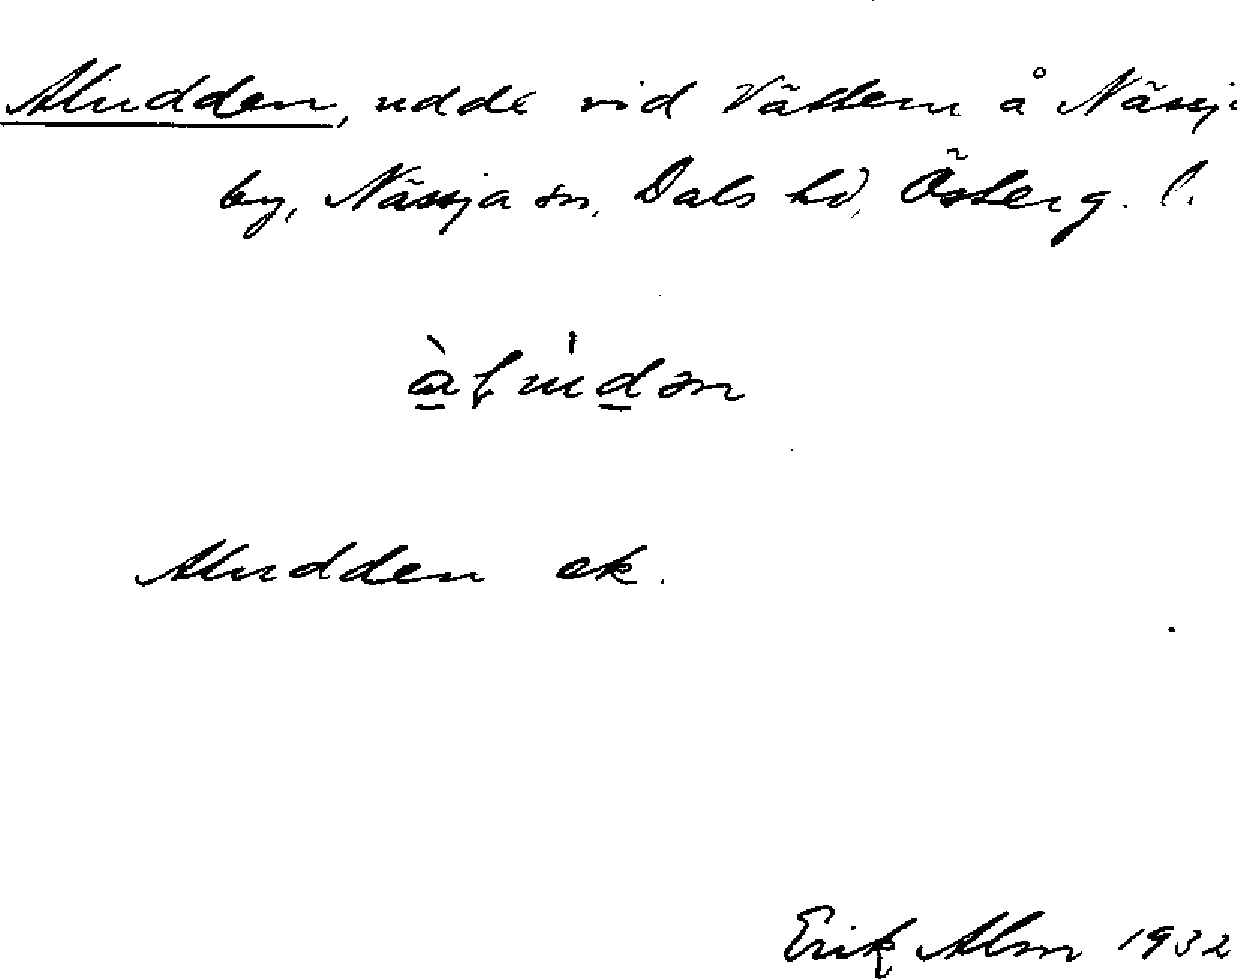 Aludden, udde vid Vättern å Nässja
by, Nässja sn, Dals hd, Österg. l.
Aludden ek.
Erik Alm 1932